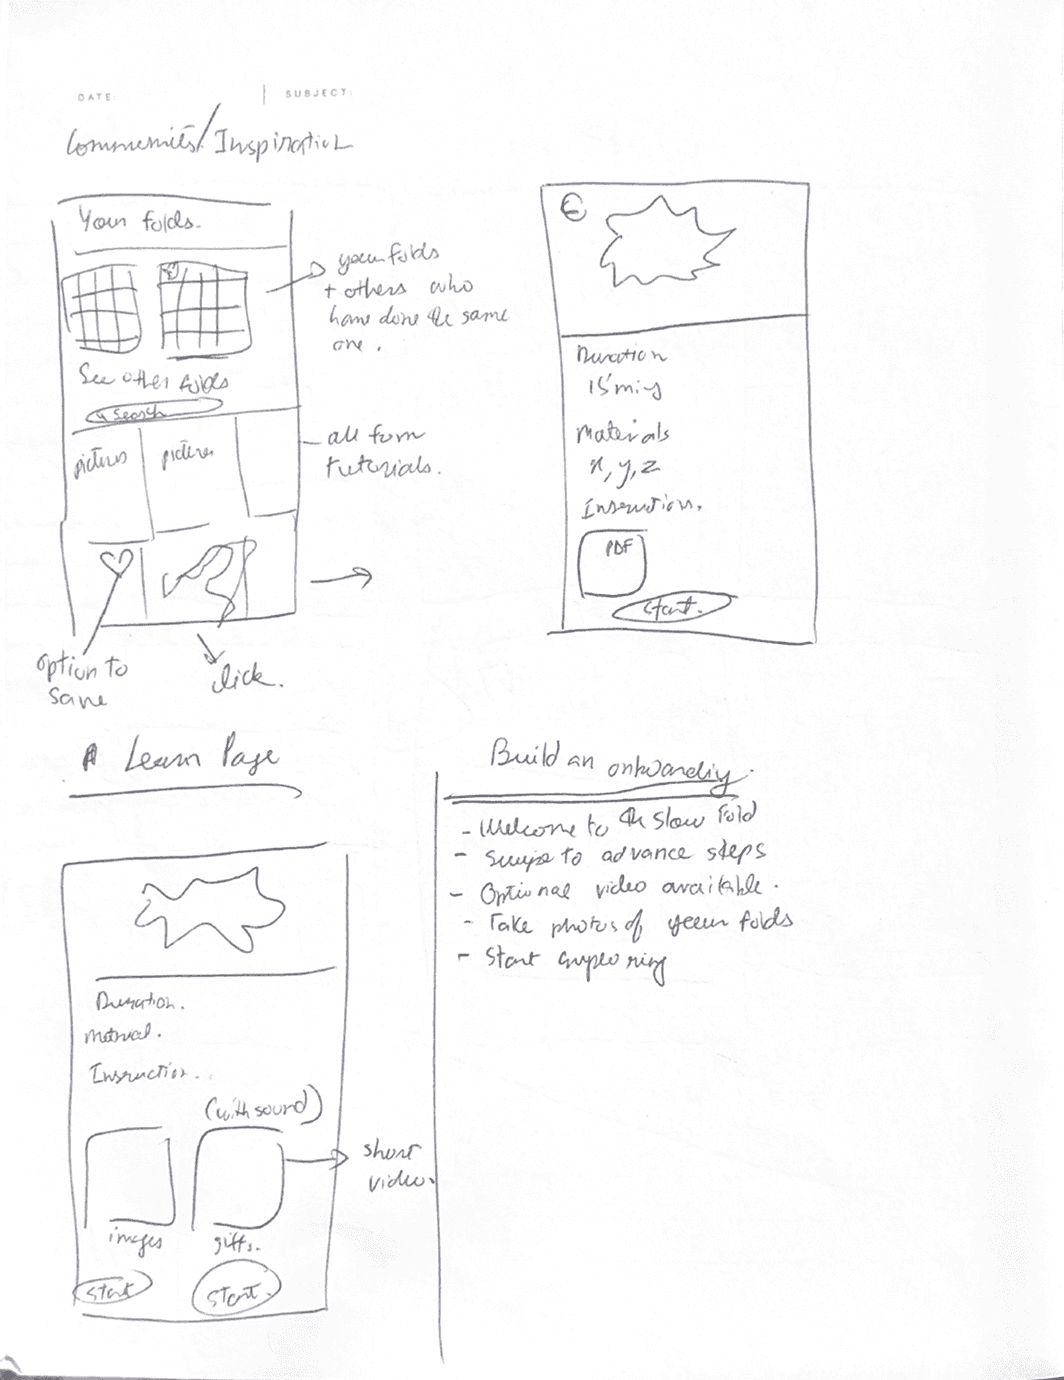 DATE:
SUBJECT:
Communities/Inspiration
Your folds.
your folds
+ others who
have done the same
one.
See other folds
Search
pictures
pictures
all from
tutorials.
option to
save
click.
Duration
15 mins
Materials
x, y, z
Instructions.
PDF
Start.
Learn Page
Duration.
Material.
Instruction..
(with sound)
short
video.
images
giffs.
Start
Start.
Build an onboarding.
- Welcome to the Slow Fold
- Swipe to advance steps
- Optional video available.
- Take photos of your folds
- Start exploring